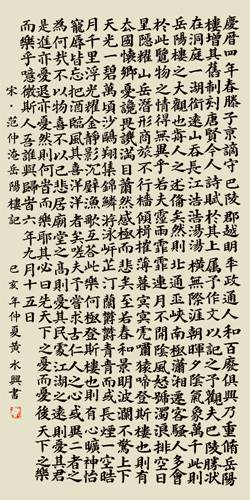 慶曆四年春滕子京謫守巴陵郡越明年政通人和百廢俱興乃重脩岳陽
樓增其舊制刻唐賢今人詩賦於其上屬予作文以記之予觀夫巴陵勝狀
在洞庭一湖銜遠山吞長江浩浩湯湯橫無際涯朝暉夕陰氣象萬千此則
岳陽樓之大觀也前人之述備矣然則北通巫峽南極瀟湘遷客騷人多會
於此覽物之情得無異乎若夫霪雨霏霏連月不開陰風怒號濁浪排空日
星隱耀山岳潛形商旅不行檣傾楫摧薄暮冥冥虎嘯猿啼登斯樓也則有
去國懷鄉憂讒畏譏滿目蕭然感極而悲者矣至若春和景明波瀾不驚上下
天光一碧萬頃沙鷗翔集錦鱗游泳岸芷汀蘭郁郁青青而或長煙一空皓
月千里浮光耀金靜影沉璧漁歌互答此樂何極登斯樓也則有心曠神怡
寵辱皆忘把酒臨風其喜洋洋者矣嗟夫予嘗求古仁人之心或異二者之
為何哉不以物喜不以己悲居廟堂之高則憂其民處江湖之遠則憂其君
是進亦憂退亦憂然則何時而樂耶其必曰先天下之憂而憂後天下之樂
而樂乎噫微斯人吾誰與歸時六年九月十五日
宋·范仲淹岳陽樓記 己亥年仲夏黃水興書